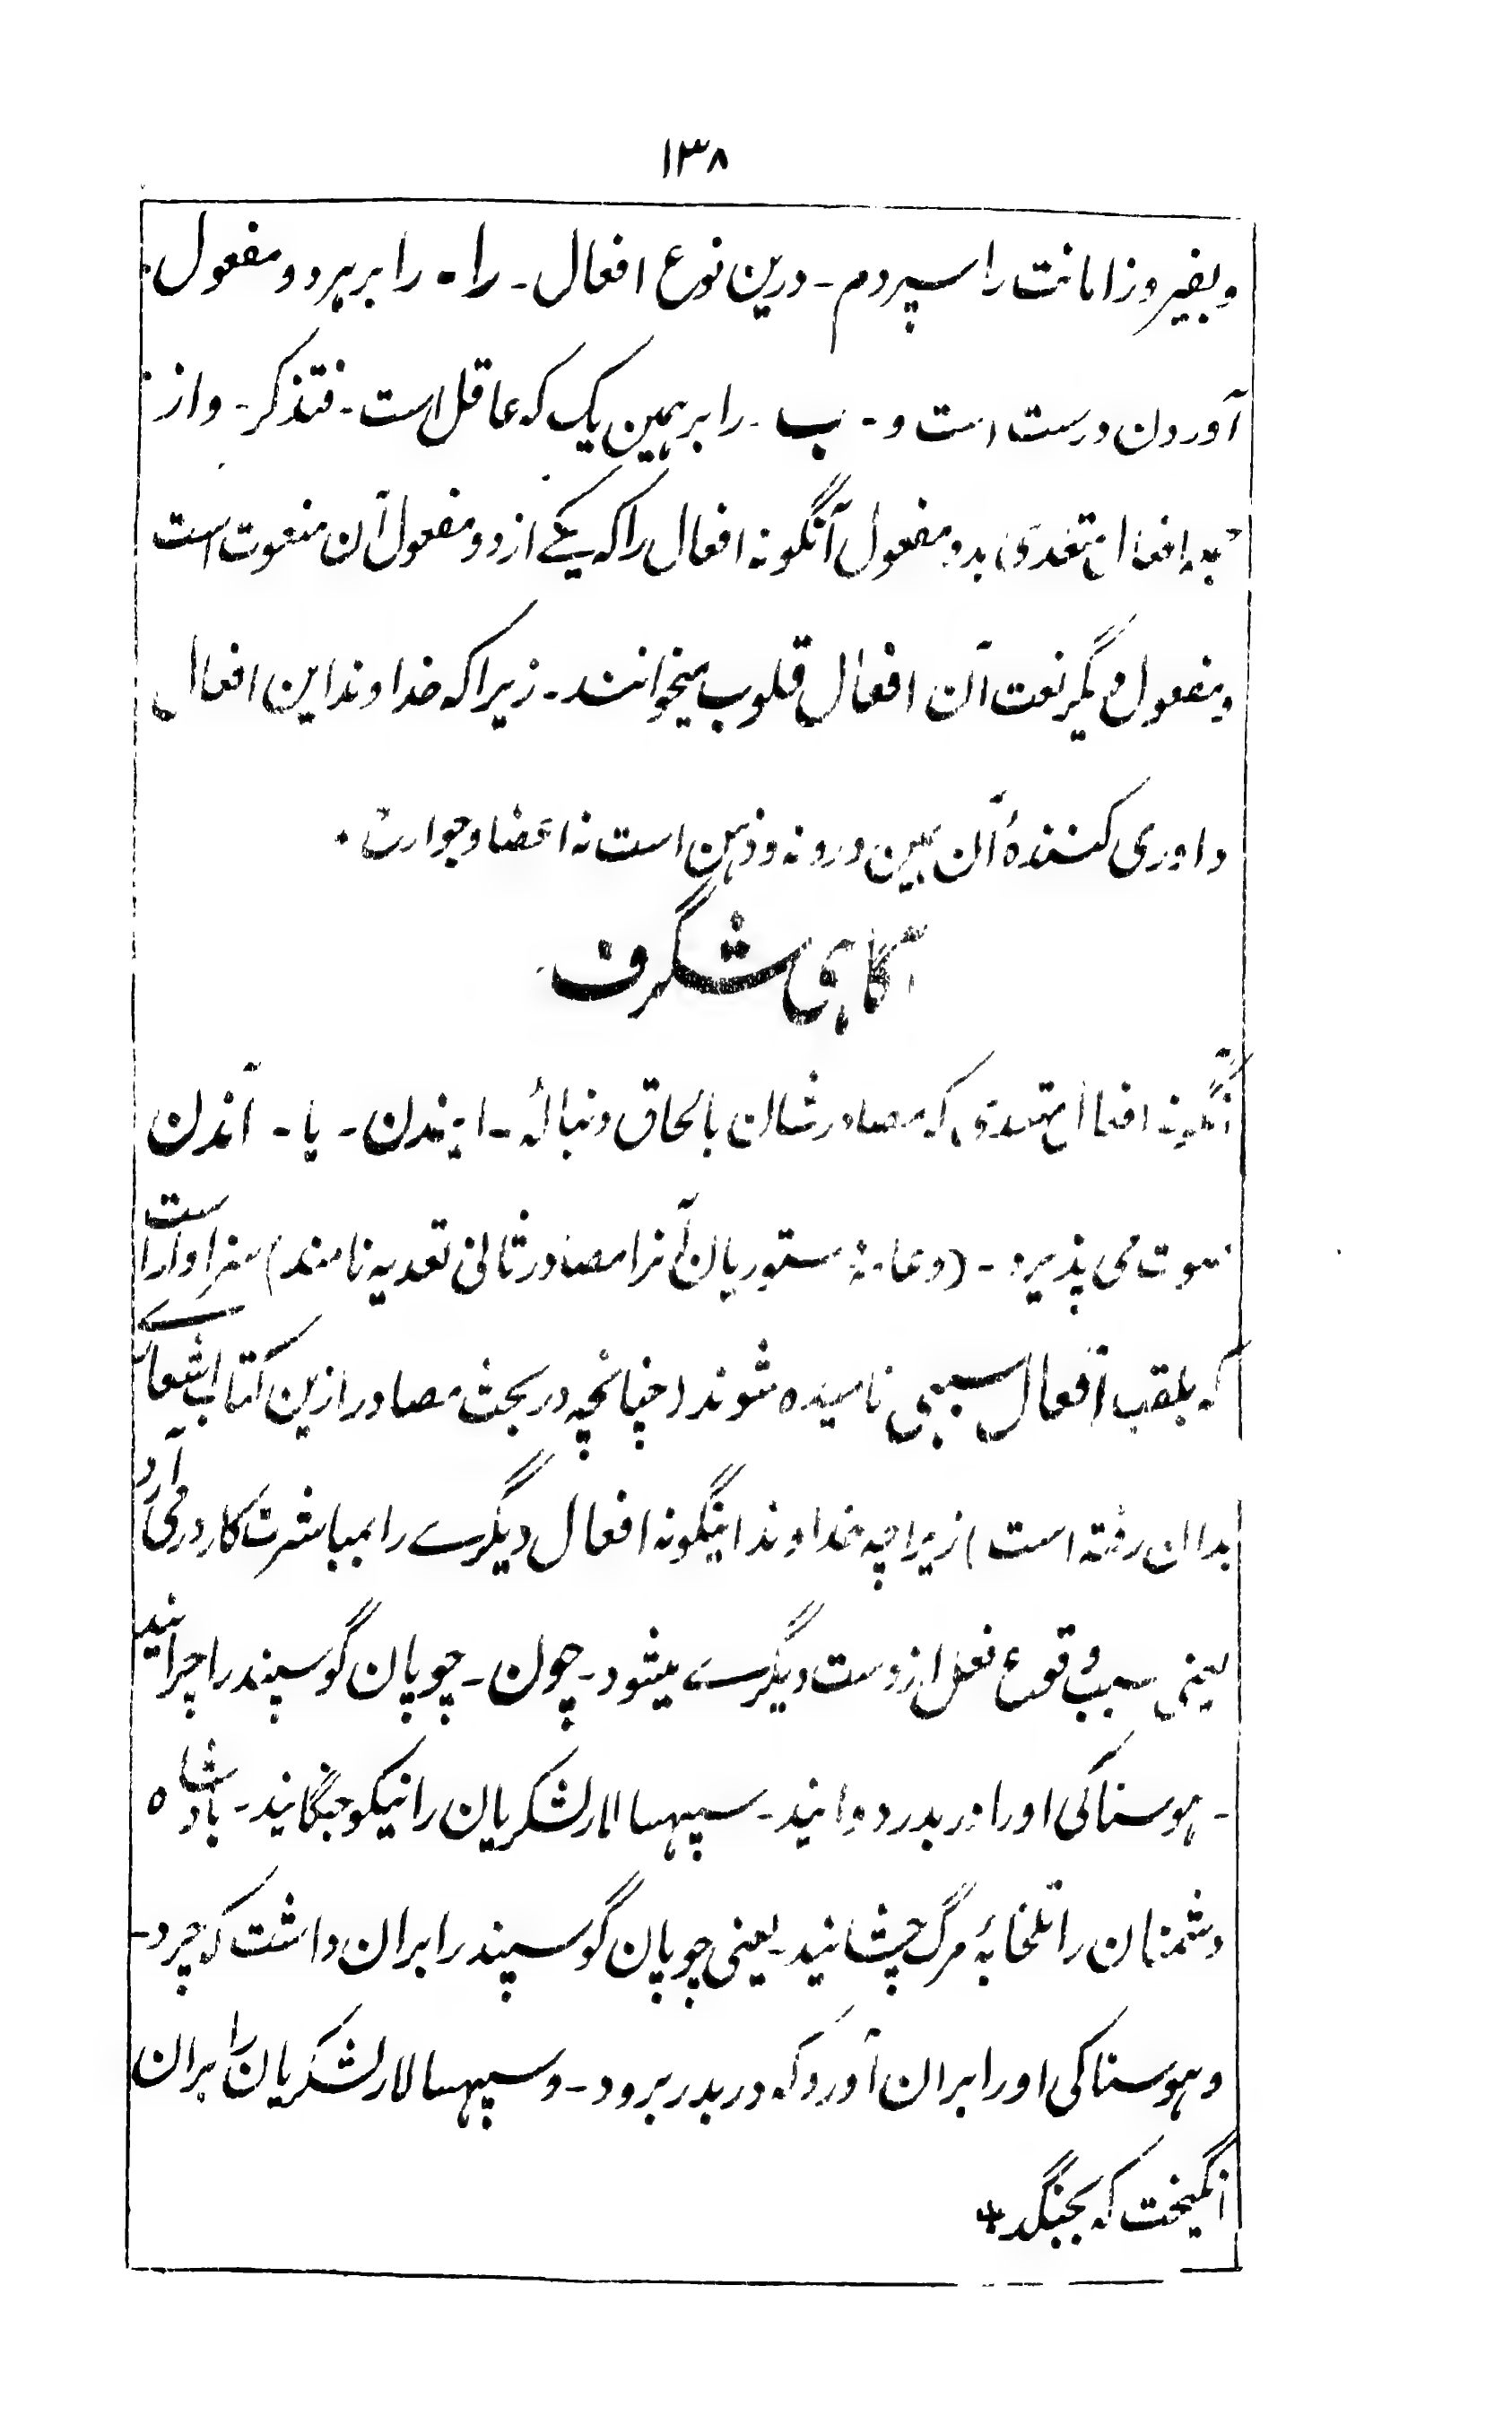 ۱۳۸
و بفیروز امانت را سپردم - درین نوع افعال - را - را بر هر دو مفعول
آوردن درست است و - ب - را بر همین یک که عاقل است - فتذکر - و از
افعال متعدی بدو مفعول آنگونه افعال را که یکے از دو مفعول آن منعوت است
و مفعول دیگر نعت آن افعال قلوب میخوانند - زیرا که خداوند این افعال
داوری کنندهٔ آن همین درونه و ذهن است نه اعضا و جوارح
آگاهی شگرف
آنگونه افعال متعدی که مصادر شان بالحاق دنبالهٔ - ایندن - یا - اندن
صورت می پذیرد - (و عامهٔ دستوریان آنرا مصادر ثانی تعدیه نامند) سزاوار است
که بلقب افعال سببی نامیده شوند (چنانچه در بحث مصادر ازین کتاب اشعارے
بدان رفته است) زیراچه خداوند اینگونه افعال دیگرے را بمباشرت کار در می آرد
یعنی سبب وقوع فعل از دست دیگرے میشود - چون - چوپان گوسپند را چرانید
- هوسناکی او را در بدر دوانید - سپهسالار لشکریان را نیکو جنگانید - بادشاه
دشمنان را تلخابهٔ مرگ چشانید - یعنی چوپان گوسپند را بران داشت که چرد -
و هوسناکی او را بران آورد که در بدر برود - و سپهسالار لشکریان را بران
انگیخت که بجنگد *